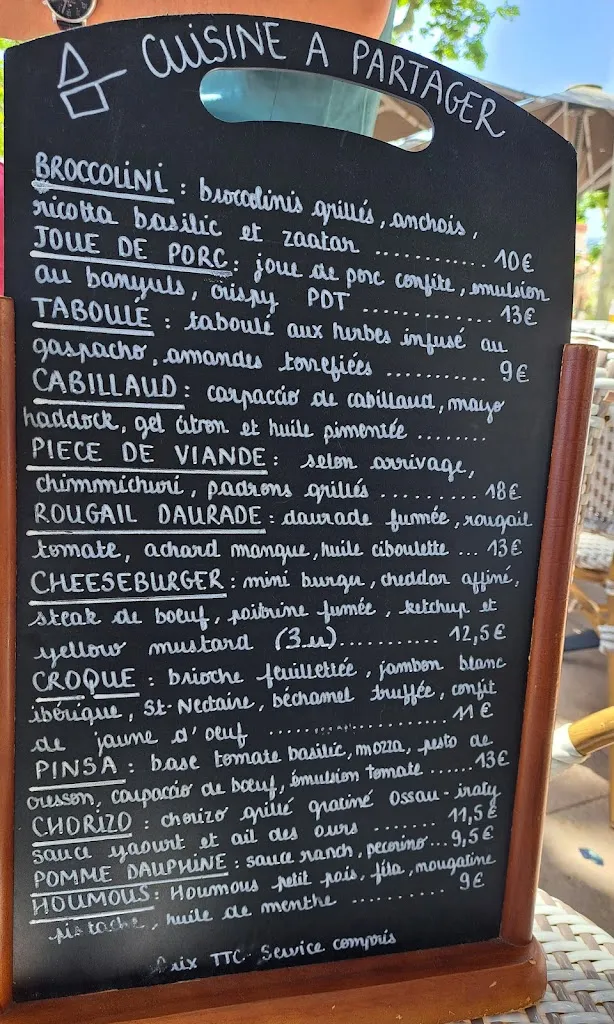 CUISINE A PARTAGER
BROCCOLINI : brocolinis grillés, anchois,
ricotta basilic et zaatar ............ 10€
JOUE DE PORC : joue de porc confite, emulsion
au banyuls, crispy PDT ............. 13€
TABOULÉ : taboulé aux herbes infusé au
gaspacho, amandes torrefiées ........... 9€
CABILLAUD : carpaccio de cabillaud, mayo
haddock, gel citron et huile pimentée ........
PIECE DE VIANDE : selon arrivage,
chimmichuri, padrons grillés .......... 18€
ROUGAIL DAURADE : daurade fumée, rougail
tomate, achard mangue, huile ciboulette ... 13€
CHEESEBURGER : mini burger, cheddar affiné,
steak de boeuf, poitrine fumée, ketchup et
yellow mustard (3u)........... 12,5€
CROQUE : brioche feuilletée, jambon blanc
ibérique, St-Nectaire, béchamel truffée, confit
de jaune d'oeuf .................. 11€
PINSA : base tomate basilic, mozza, pesto de
cresson, carpaccio de boeuf, émulsion tomate ......13€
CHORIZO : chorizo grillé gratiné Ossau-iraty
sauce yaourt et ail des ours ........ 11,5€
POMME DAUPHINE : sauce ranch, pecorino...9,5€
HOUMOUS : Houmous petit pois, féta, nougatine
pistache, huile de menthe ............ 9€
Prix TTC Service compris